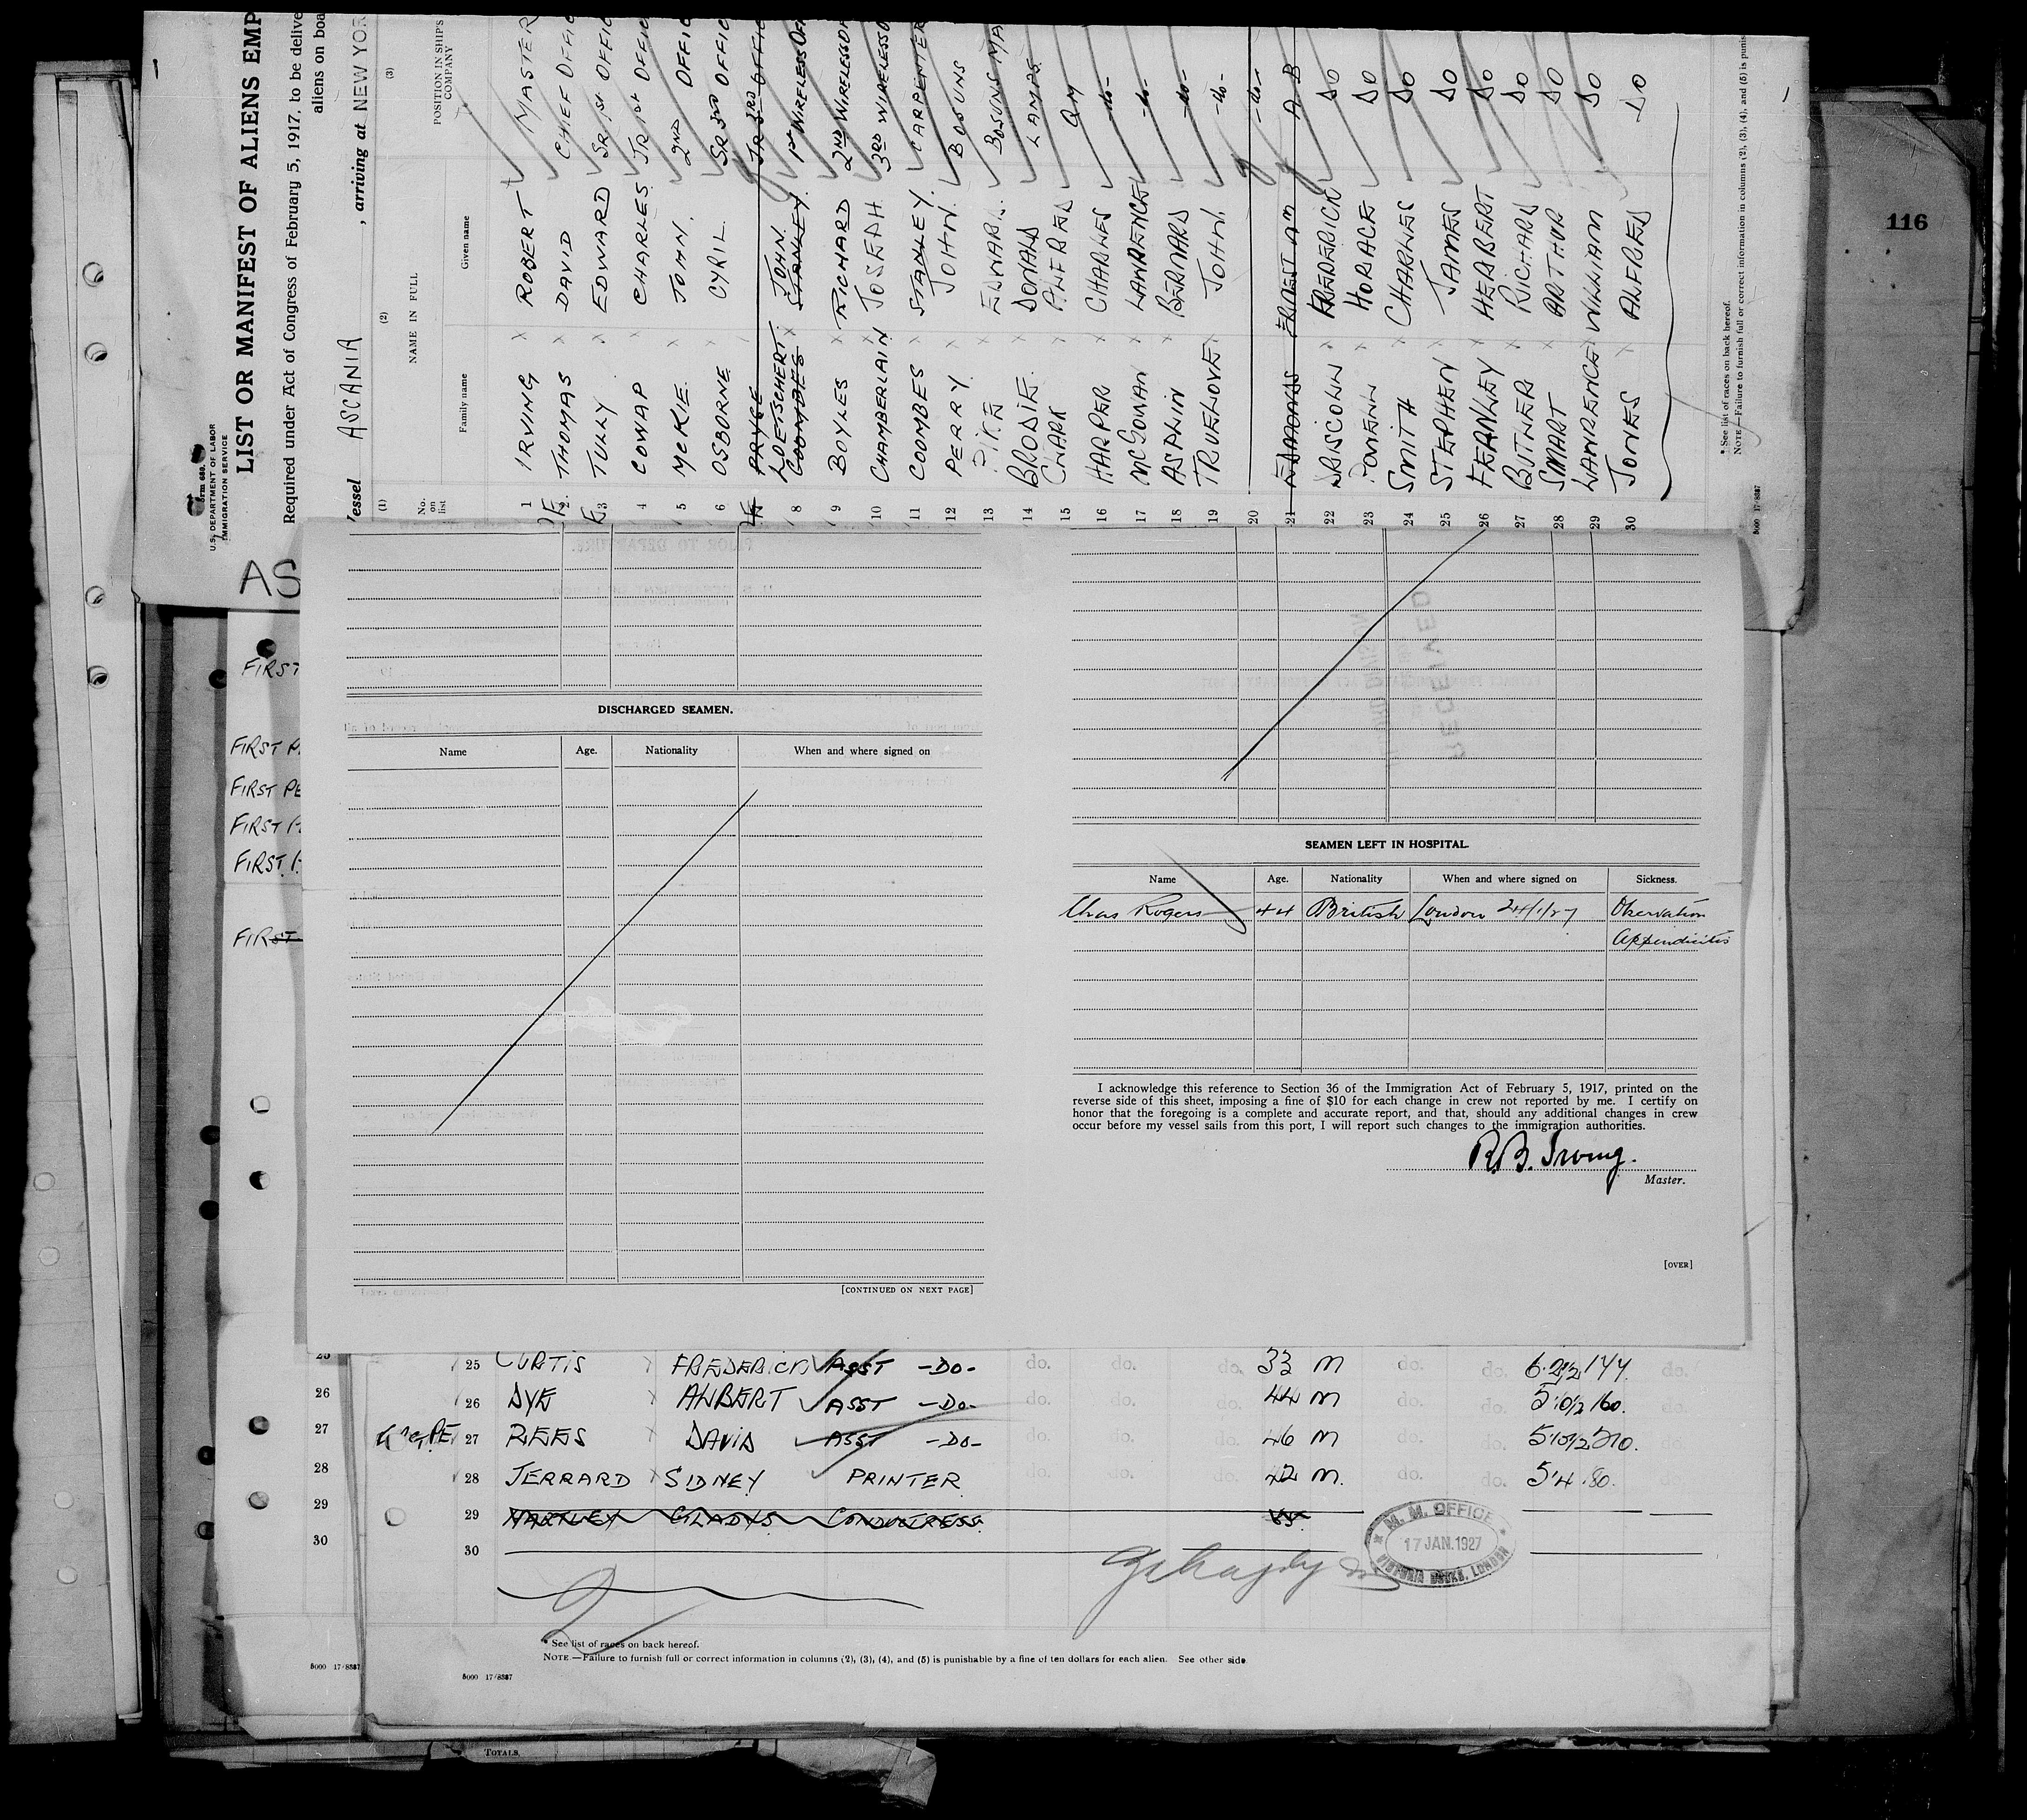 116
Form 680.
U.S. DEPARTMENT OF LABOR
IMMIGRATION SERVICE
LIST OR MANIFEST OF ALIENS EMP
Required under Act of Congress of February 5, 1917, to be delive
aliens on boa
Vessel ASCANIA , arriving at NEW YOR
(1) (2) (3)
No. on list NAME IN FULL POSITION IN SHIP'S COMPANY
Family name Given name
1 IRVING ROBERT MASTER
2 THOMAS DAVID CHIEF OFFIC
3 TULLY EDWARD SR 1ST OFFIC
4 COWAP CHARLES JR 1ST OFFIC
5 McKIE JOHN 2ND OFFIC
6 OSBORNE CYRIL SR 3RD OFFIC
PRYCE JR 3RD OFFIC
LOETSCHERT JOHN
8 COOMBES STANLEY 1ST WIRELESS OF
9 BOYLES RICHARD 2ND WIRELESS OF
10 CHAMBERLAIN JOSEPH 3RD WIRELESS O
11 COOMBES STANLEY CARPENTER
12 PERRY JOHN BOSUNS
13 PIKE EDWARD BOSUNS MA
14 BRODIE DONALD LAMPS
15 CLARK ALFRED QM
16 HARPER CHARLES -do-
17 McGOWAN LAWRENCE -do-
18 ASPLIN BERNARD -do-
19 TRUELOVE JOHN -do-
20 -do-
21 ERNEST AB
22 DRISCOLL FREDERICK DO
23 POWELL HORACE DO
24 SMITH CHARLES DO
25 STEPHEN JAMES DO
26 FERNLEY HERBERT DO
27 BUTLER RICHARD DO
28 SMART ARTHUR DO
29 LAWRENCE WILLIAM DO
30 JONES ALFRED DO
* See list of races on back hereof.
NOTE—Failure to furnish full or correct information in columns (2), (3), (4), and (5) is punis
5000 17-8387
AS
FIRST
FIRST P
FIRST PE
FIRST
FIRST
FIRST
DISCHARGED SEAMEN.
Name Age. Nationality When and where signed on
[CONTINUED ON NEXT PAGE]
RECEIVED
SEAMEN LEFT IN HOSPITAL.
Name Age. Nationality When and where signed on Sickness.
Chas Rogers 44 British London 24/1/27 Observation
Appendicitis
I acknowledge this reference to Section 36 of the Immigration Act of February 5, 1917, printed on the
reverse side of this sheet, imposing a fine of $10 for each change in crew not reported by me. I certify on
honor that the foregoing is a complete and accurate report, and that, should any additional changes in crew
occur before my vessel sails from this port, I will report such changes to the immigration authorities.
R.B. Irving.
Master.
[OVER]
25 25 CURTIS FREDERICK ASST -DO- do. do. do. 33 M do. do. 6.2½ 144. do.
26 26 DYE ALBERT ASST -DO- do. do. do. 44 M do. do. 5'10½ 160. do.
27 27 REES DAVID ASST -DO- do. do. do. 46 M do. do. 5'10½ 210. do.
28 28 JERRARD SIDNEY PRINTER do. do. do. 42 M. do. do. 5'4 80. do.
29 29 HARTLEY GLADYS CONDUCTRESS
30 30
M. M. OFFICE
17 JAN. 1927
VICTORIA DOCKS, LONDON
* See list of races on back hereof.
NOTE.—Failure to furnish full or correct information in columns (2), (3), (4), and (5) is punishable by a fine of ten dollars for each alien. See other side.
5000 17-8387
5000 17-8387
TOTALS